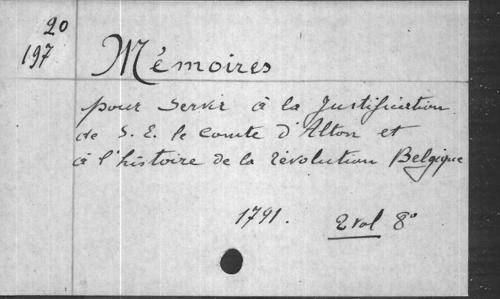 20
197
Mémoires
pour servir à la Justification
de S. E. le comte d'Alton et
à l'histoire de la révolution Belgique
1791. 2 vol 8°